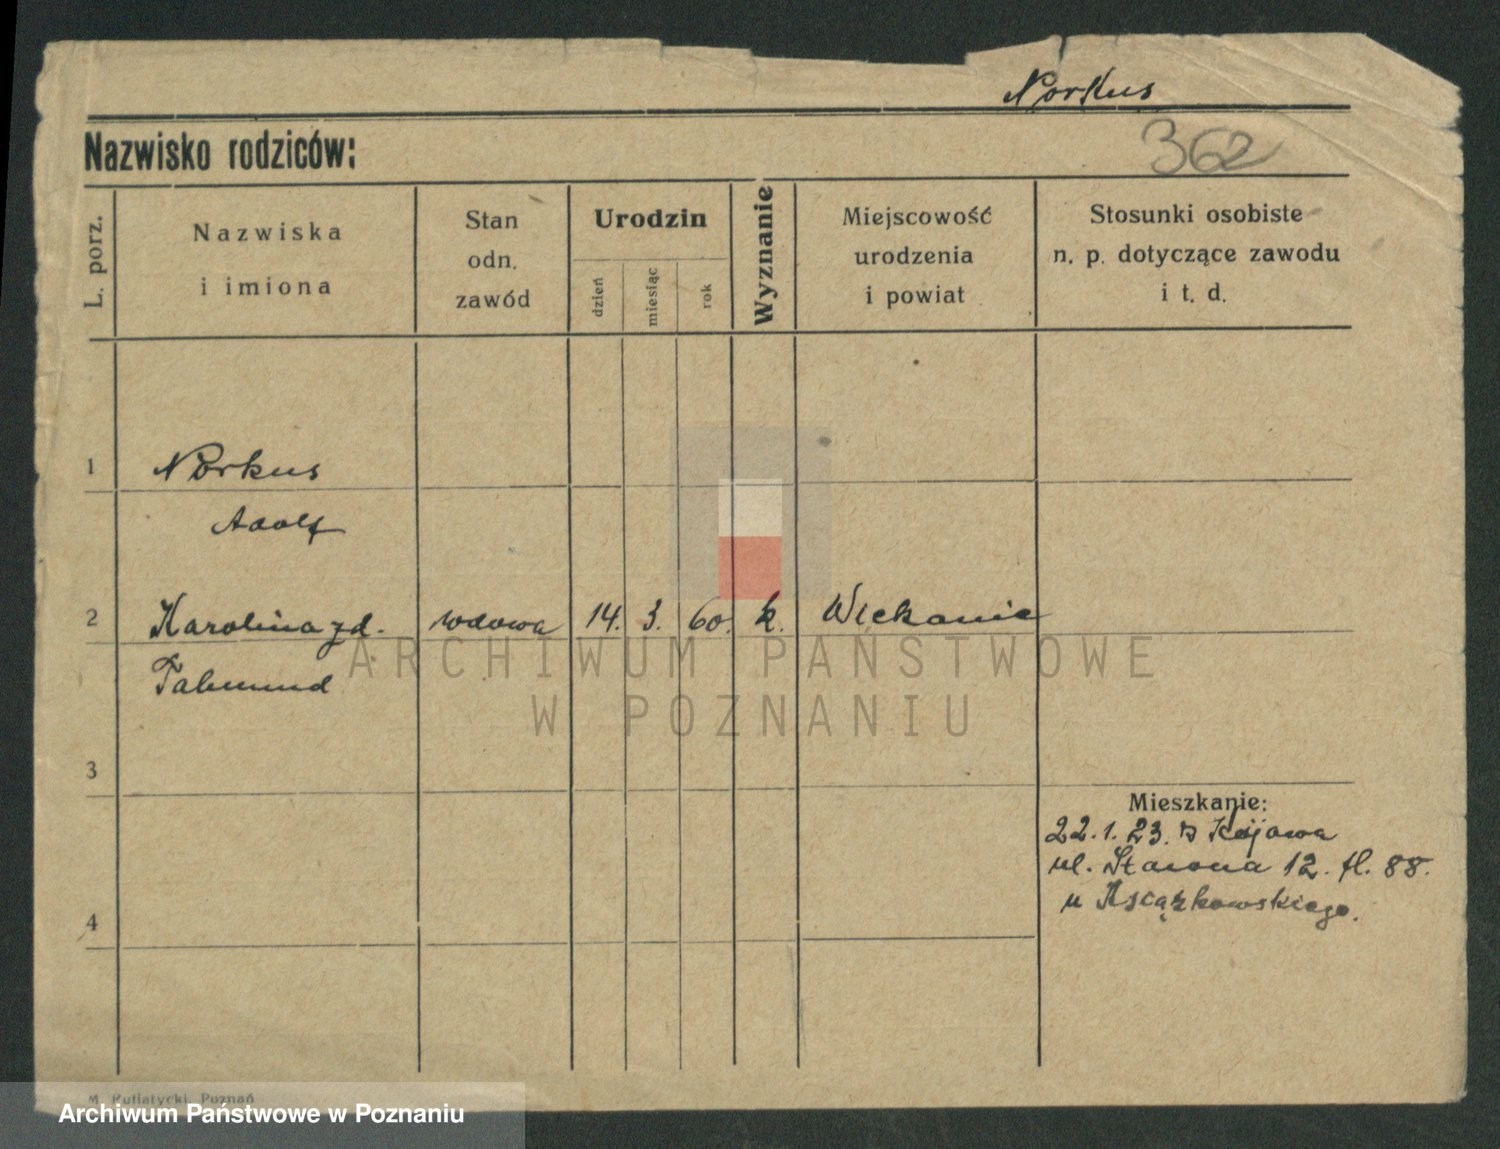 Norkus
Nazwisko rodziców:
362
L. porz.
Nazwiska
i imiona
Stan
odn.
zawód
Urodzin
dzień
miesiąc
rok
Wyznanie
Miejscowość
urodzenia
i powiat
Stosunki osobiste
n. p. dotyczące zawodu
i t. d.
1
Norkus
Adolf
2 Karolina zd. wdowa 14. 3. 60. k.
ARCHIWUM PAŃSTWOWE
W POZNANIU
3
Mieszkanie:
22. 1. 23.
ul. 12. 88.
u Książkowskiego.
4
M. Putiatycki, Poznań
Archiwum Państwowe w Poznaniu